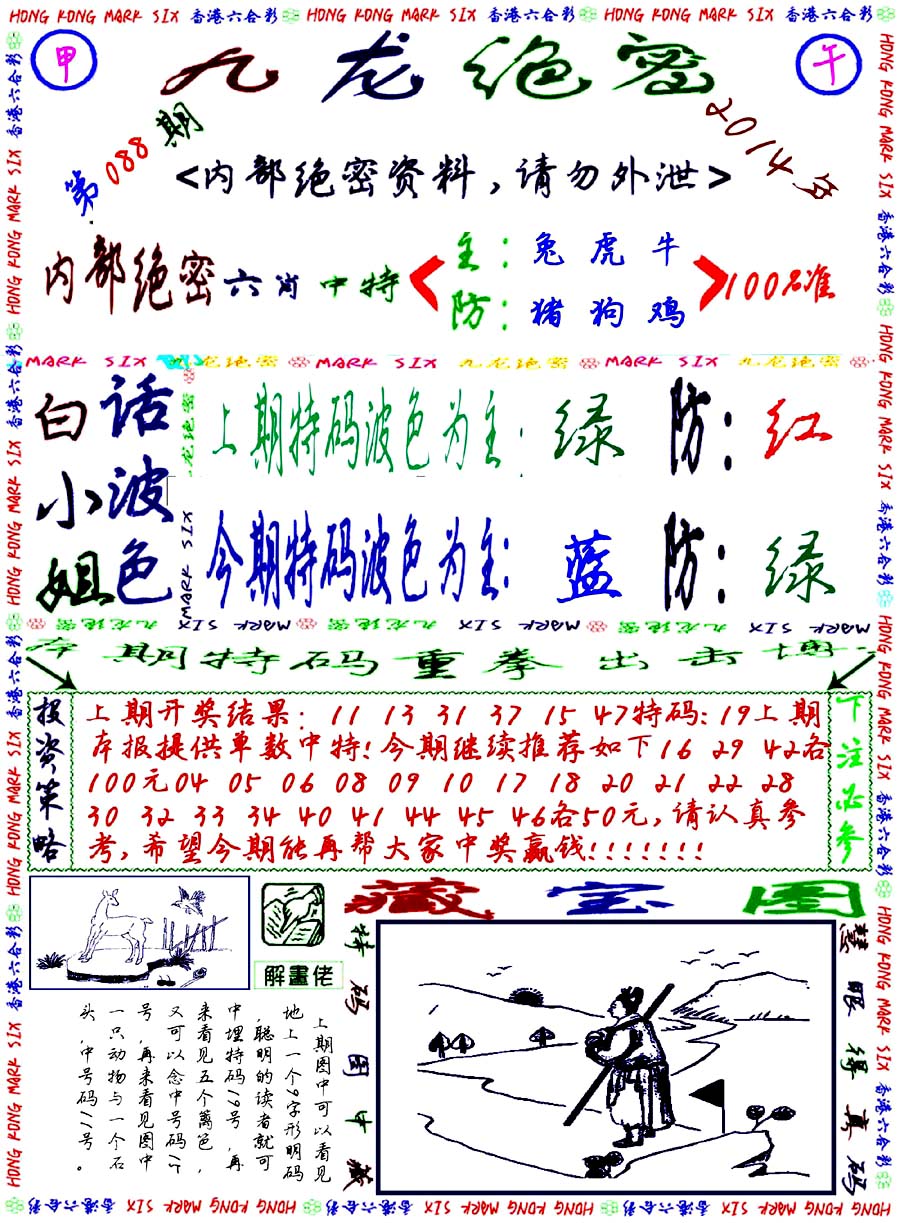 HONG KONG MARK SIX 香港六合彩 HONG KONG MARK SIX 香港六合彩 HONG KONG MARK SIX 香港六合彩
甲 九龙绝密 午
第088期 2014年
<内部绝密资料,请勿外泄>
内部绝密六肖中特 主:兔 虎 牛
防:猪 狗 鸡 100%准
MARK SIX 九龙绝密 MARK SIX 九龙绝密 MARK SIX 九龙绝密
白小姐 话波色
九龙绝密 MARK SIX
上期特码波色为主:绿 防:红
今期特码波色为主:蓝 防:绿
九龙绝密 MARK SIX 九龙绝密 MARK SIX 九龙绝密 MARK SIX
本期特码重拳出击博
投资策略
上期开奖结果:11 13 31 37 15 47特码:19上期
本报提供单数中特!今期继续推荐如下16 29 42各
100元04 05 06 08 09 10 17 18 20 21 22 28
30 32 33 34 40 41 44 45 46各50元,请认真参
考,希望今期能再帮大家中奖赢钱!!!!!!!
下注必参
藏宝图
解畫佬
特码图中藏
慧眼得真码
上期图中可以看见
地上一个9字形明码
,聪明的读者就可
中埋特码19号,再
来看见五个篱色,
又可以念中号码15
号,再来看见图中
一只动物与一个石
头,中号码11号。
HONG KONG MARK SIX 香港六合彩 HONG KONG MARK SIX 香港六合彩 HONG KONG MARK SIX 香港六合彩